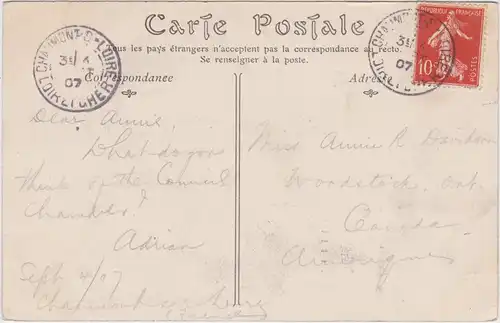 Carte Postale
Tous les pays étrangers n'acceptent pas la correspondance au recto.
Se renseigner à la poste.
Correspondance
Adresse
CHAUMONT-S-LOIRE
07
LOIR-ET-CHER
CHAUMONT-S-LOIRE
07
REPUBLIQUE FRANÇAISE
10
POSTES
Dear Annie,
What do you
think of the Council
Chamber?
Adrian
Sept 4/07
Chaumont sur Loire
(France)
Miss Annie R Davidson
Woodstock, Ont.
Canada
Amerique